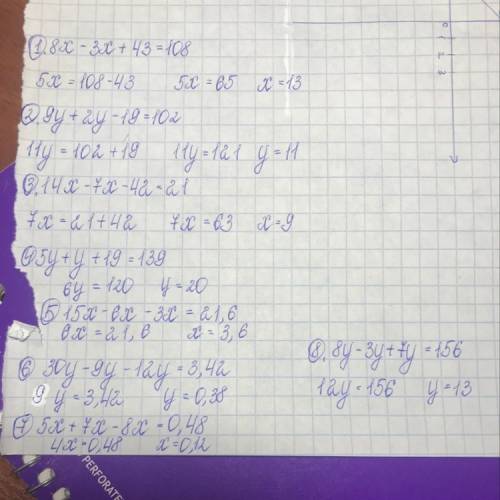 1. 8x - 3x + 43 = 108
5x = 108 - 43 5x = 65 x = 13
2. 9y + 2y - 19 = 102
11y = 102 + 19 11y = 121 y = 11
3. 14x - 7x - 42 = 21
7x = 21 + 42 7x = 63 x = 9
4 5y + y + 19 = 139
6y = 120 y = 20
5 15x - 6x - 3x = 21,6
6x = 21,6 x = 3,6
6 30y - 9y - 12y = 3,42
9y = 3,42 y = 0,38
7 5x + 7x - 8x = 0,48
4x = 0,48 x = 0,12
8. 8y - 3y + 7y = 156
12y = 156 y = 13
0 1 2 3
PERFORATE